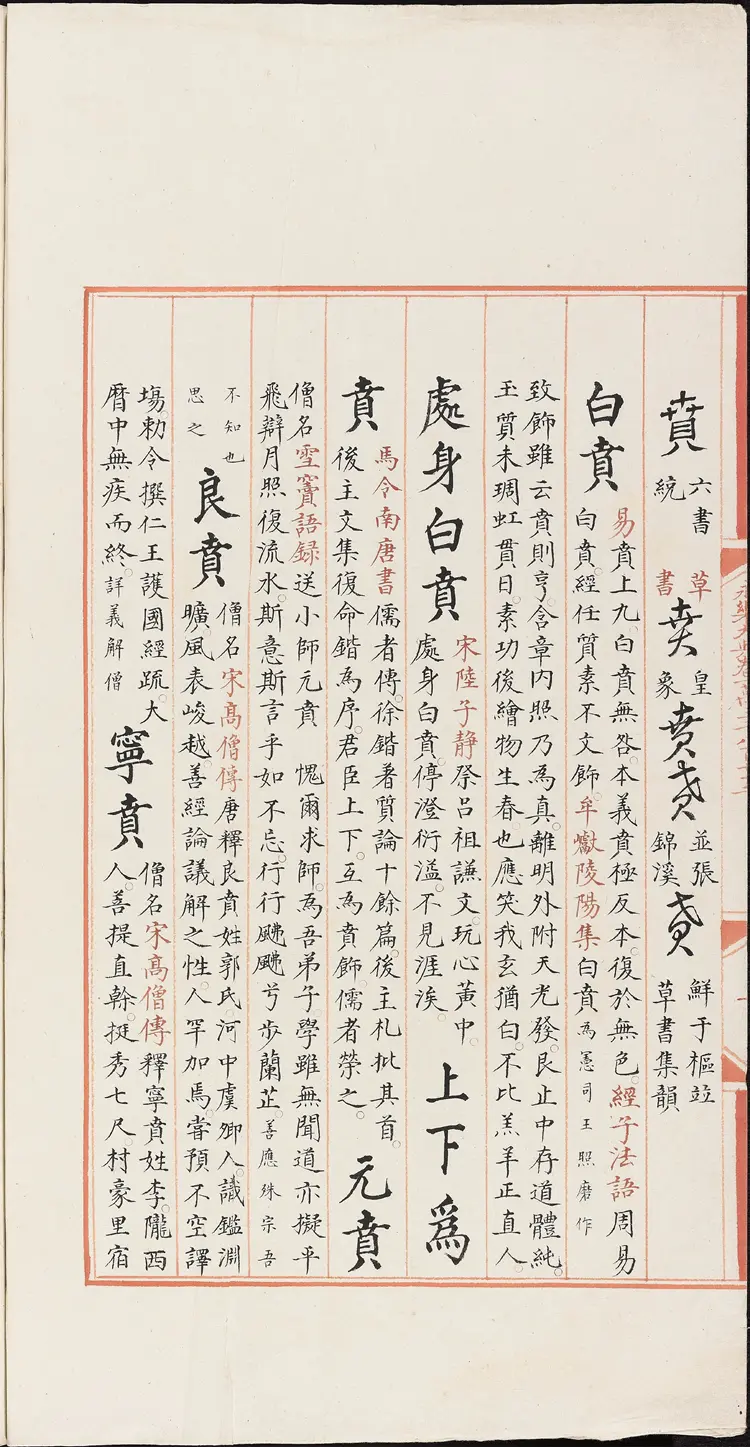 賁六書統草書賁皇象賁賁並張錦溪賁鮮于樞並草書集韻
白賁易賁上九。白賁無咎。本義賁極反本。復於無色。經子法語周易
白賁。經任質素不文飾。牟巘陵陽集白賁為憲司王照磨作
致飾雖云賁則亨。含章内照乃為真。離明外附天光發。艮止中存道體純。
玉質未琱虹貫日。素功後繪物生春也。應笑我玄猶白。不比羔羊正直人。
處身白賁宋陸子靜祭呂祖謙文。玩心黃中。
處身白賁。停澄衍溢。不見涯涘。上下爲
賁馬令南唐書儒者傳。徐鍇著質論十餘篇。後主札批其首。
後主文集復命鍇為序。君臣上下。互為賁飾。儒者榮之。元賁
僧名雪竇語録送小師元賁 愧爾求師。為吾弟子。學雖無聞道亦擬乎
飛辯月照復流水。斯意斯言乎如不忘。行行颺颺兮步蘭芷。善應殊宗吾
不知也
思之
良賁僧名宋高僧傳唐釋良賁姓郭氏。河中虞鄉人。識鑑淵
曠。風表峻越。善經論議解之性。人罕加焉。嘗預不空譯
塲勅令撰仁王護國經疏。大
曆中無疾而終。詳義解僧
寧賁僧名宋高僧傳釋寧賁姓李。隴西
人。善提直幹。挺秀七尺。村豪里宿